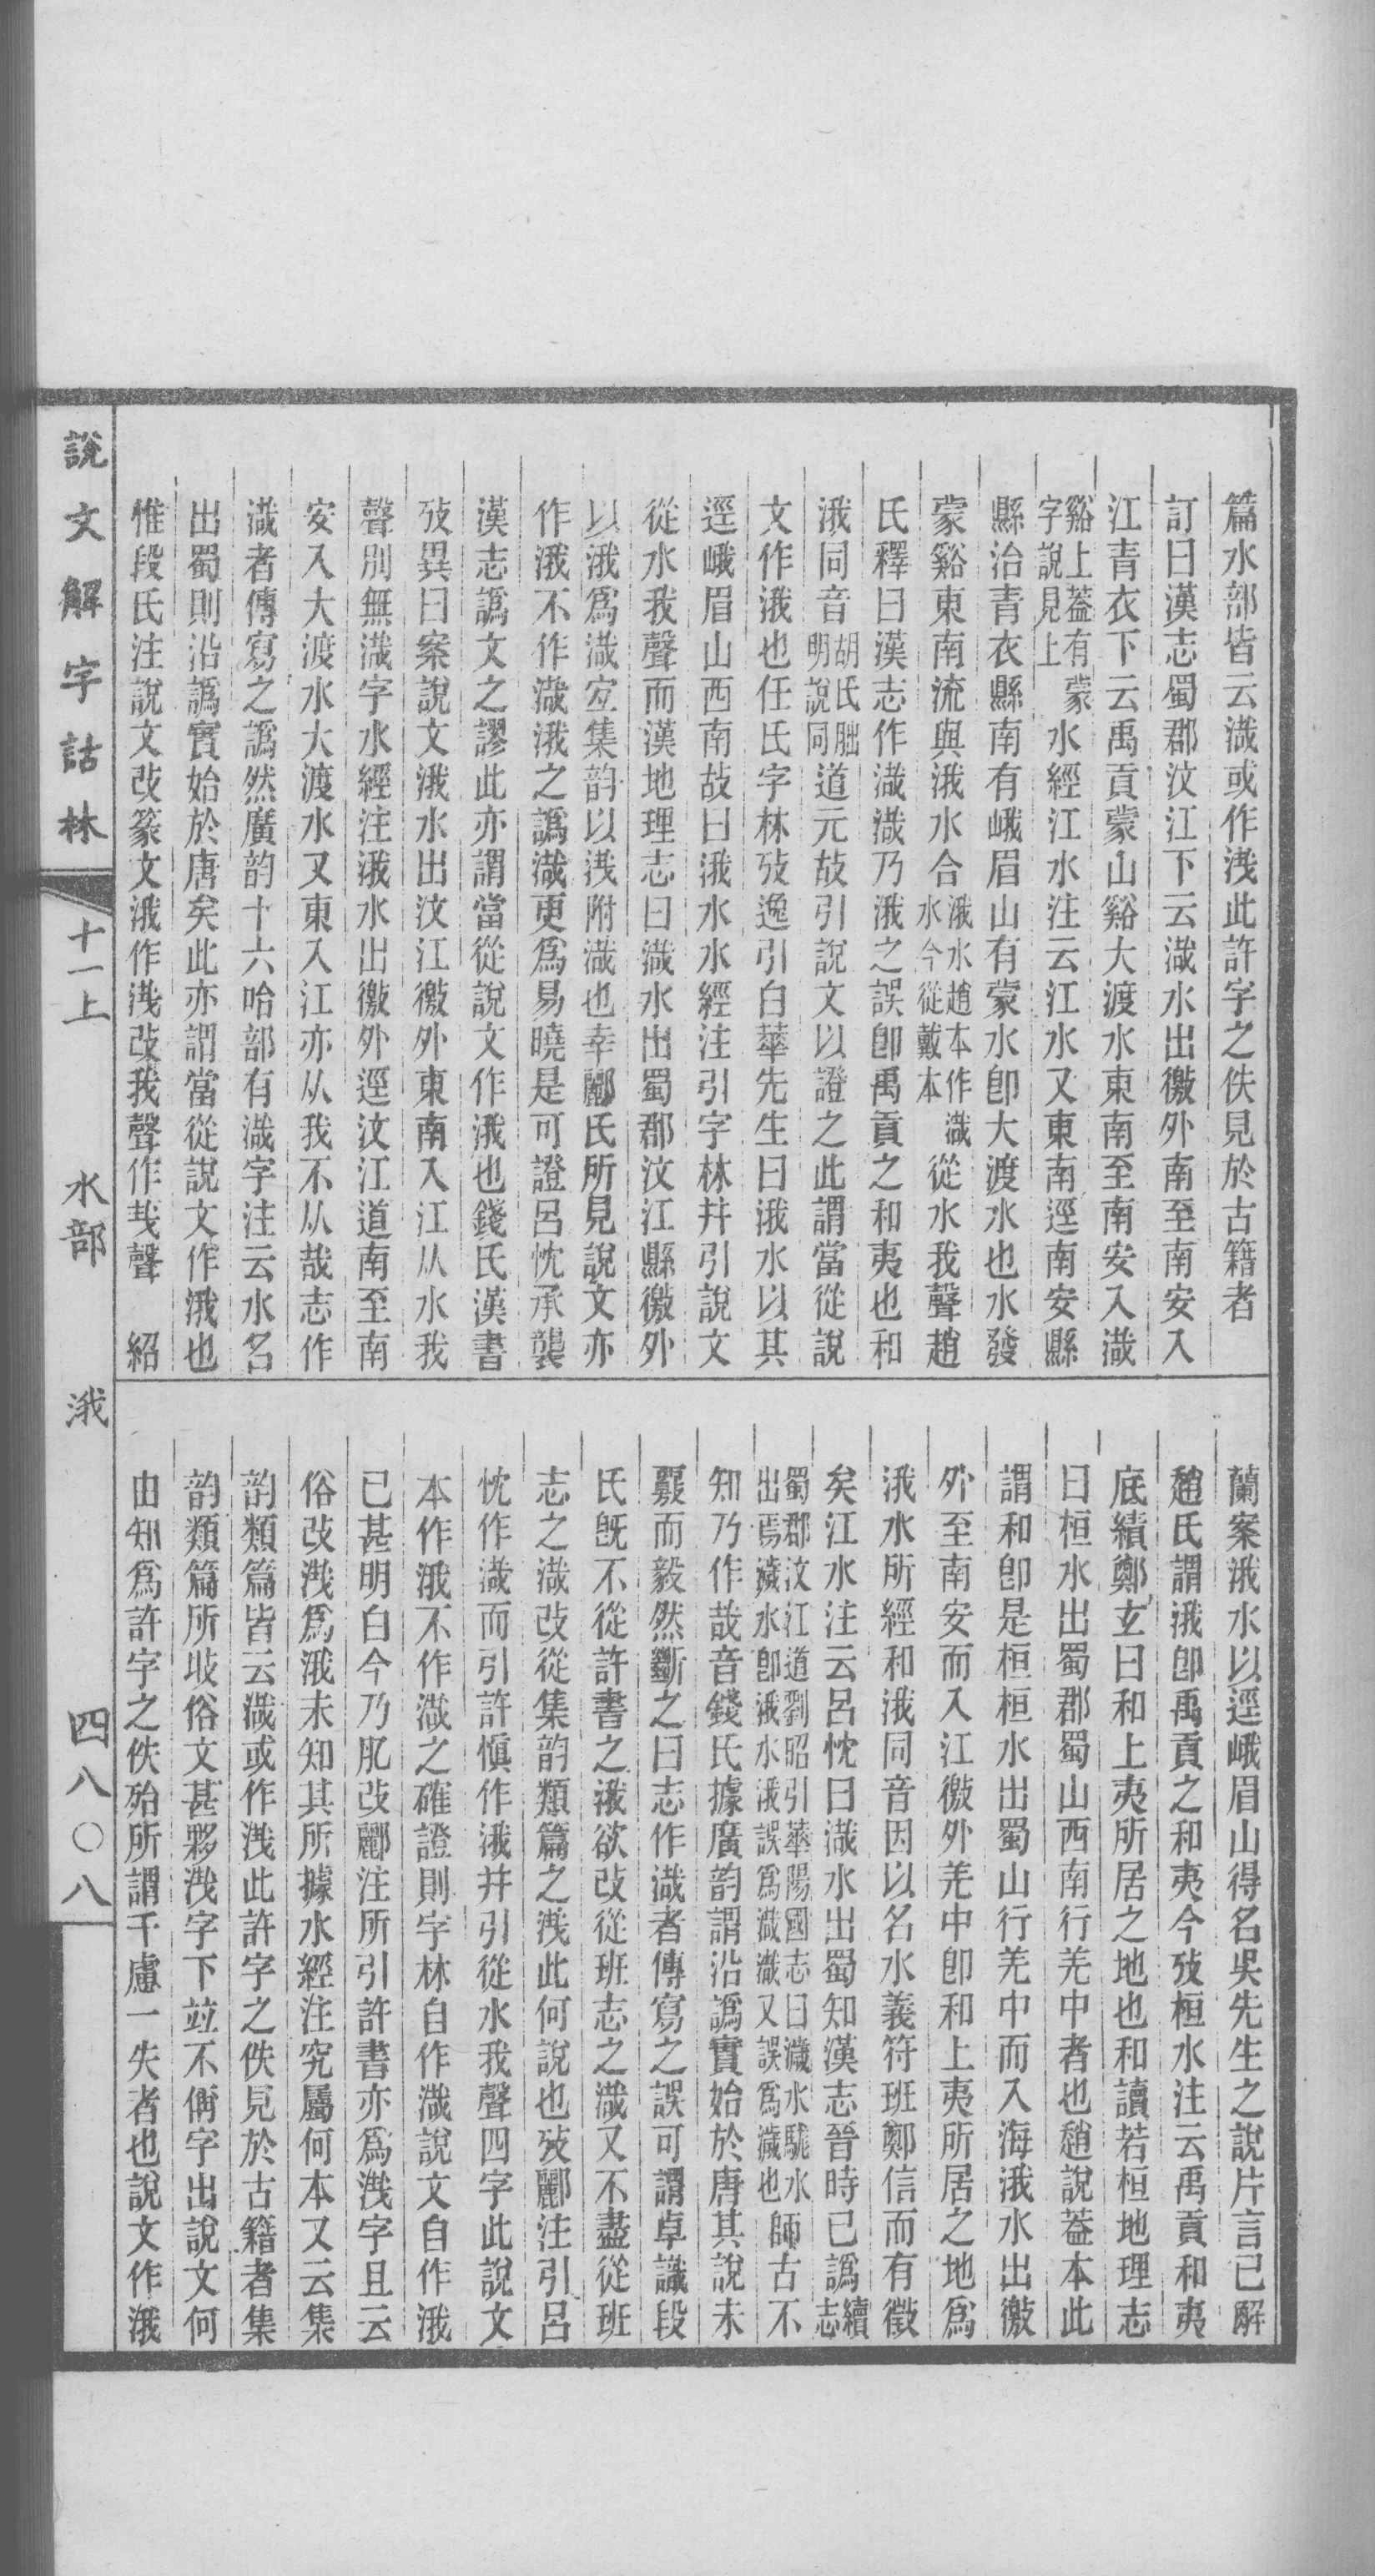 篇水部皆云渽或作浅此許字之佚見於古籍者
訂曰漢志蜀郡汶江下云渽水出徼外南至南安入
江青衣下云禹貢蒙山谿大渡水東南至南安入渽
谿上葢有蒙字說見上水經江水注云江水又東南逕南安縣
縣治青衣縣南有峨眉山有蒙水卽大渡水也水發
蒙谿東南流與涐水合涐水趙本作渽水今從戴本從水我聲趙
氏釋曰漢志作渽渽乃涐之誤卽禹貢之和夷也和
涐同音胡氏朏明說同道元故引說文以證之此謂當從說
文作涐也任氏字林攷逸引白華先生曰涐水以其
逕峨眉山西南故曰涐水水經注引字林幷引說文
從水我聲而漢地理志曰渽水出蜀郡汶江縣徼外
以涐爲渽宐集韵以浅附渽也幸酈氏所見說文亦
作涐不作渽涐之譌渽更爲易曉是可證呂忱承襲
漢志譌文之謬此亦謂當從說文作涐也錢氏漢書
攷異曰案說文涐水出汶江徼外東南入江从水我
聲別無渽字水經注涐水出徼外逕汶江道南至南
安入大渡水大渡水又東入江亦从我不从哉志作
渽者傳寫之譌然廣韵十六咍部有渽字注云水名
出蜀則沿譌實始於唐矣此亦謂當從說文作涐也
惟段氏注說文改篆文涐作浅改我聲作𢦏聲　紹
蘭案涐水以逕峨眉山得名吳先生之說片言已解
趙氏謂涐卽禹貢之和夷今攷桓水注云禹貢和夷
底績鄭玄曰和上夷所居之地也和讀若桓地理志
曰桓水出蜀郡蜀山西南行羌中者也趙說葢本此
謂和卽是桓桓水出蜀山行羌中而入海涐水出徼
外至南安而入江徼外羌中卽和上夷所居之地爲
涐水所經和涐同音因以名水義符班鄭信而有徵
矣江水注云呂忱曰渽水出蜀知漢志晉時已譌續志
蜀郡汶江道劉昭引華陽國志曰濊水駹水出焉濊水卽涐水涐誤爲渽渽又誤爲濊也師古不
知乃作哉音錢氏據廣韵謂沿譌實始於唐其說未
覈而毅然斷之曰志作渽者傳寫之誤可謂卓識段
氏旣不從許書之涐欲改從班志之渽又不盡從班
志之渽改從集韵類篇之浅此何說也攷酈注引呂
忱作渽而引許愼作涐幷引從水我聲四字此說文
本作涐不作渽之確證則字林自作渽說文自作涐
已甚明白今乃肊改酈注所引許書亦爲浅字且云
俗改浅爲涐未知其所據水經注究屬何本又云集
韵類篇皆云渽或作浅此許字之佚見於古籍者集
韵類篇所坿俗文甚夥浅字下竝不偁字出說文何
由知爲許字之佚殆所謂千慮一失者也說文作涐
說文解字詁林　十一上　水部　涐　四八〇八